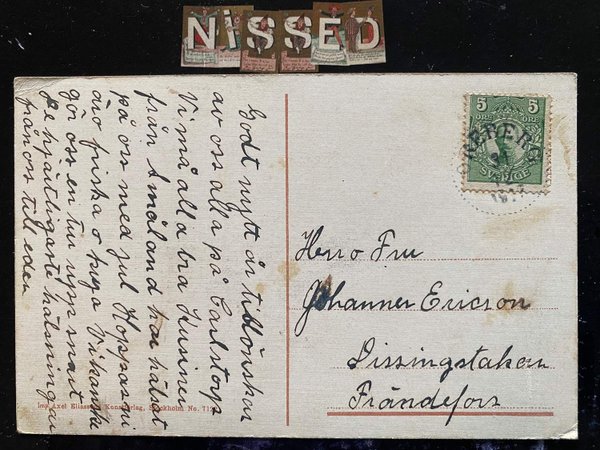 NISSED
Godt nytt år tillönskas
av oss alla på Carlstorp
Vi må alla bra Kusiner
från Småland har hälsat
på oss med jul Hoppas ni
äro friska o pyga Vi kanske
gör oss en tur upp snart
De hjärtligaste hälsningar
från oss till eder
Herr o Fru
Johannes Ericson
Dissingstaken
Frändefors
5 5
ÖRE ÖRE
SVERIGE
Axel Eliassons Konstförlag, Stockholm No. 71